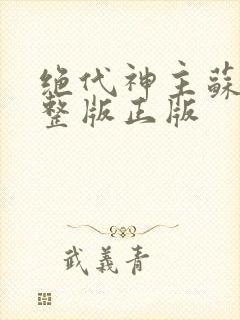 绝代神主蘇
整版正版
武義青